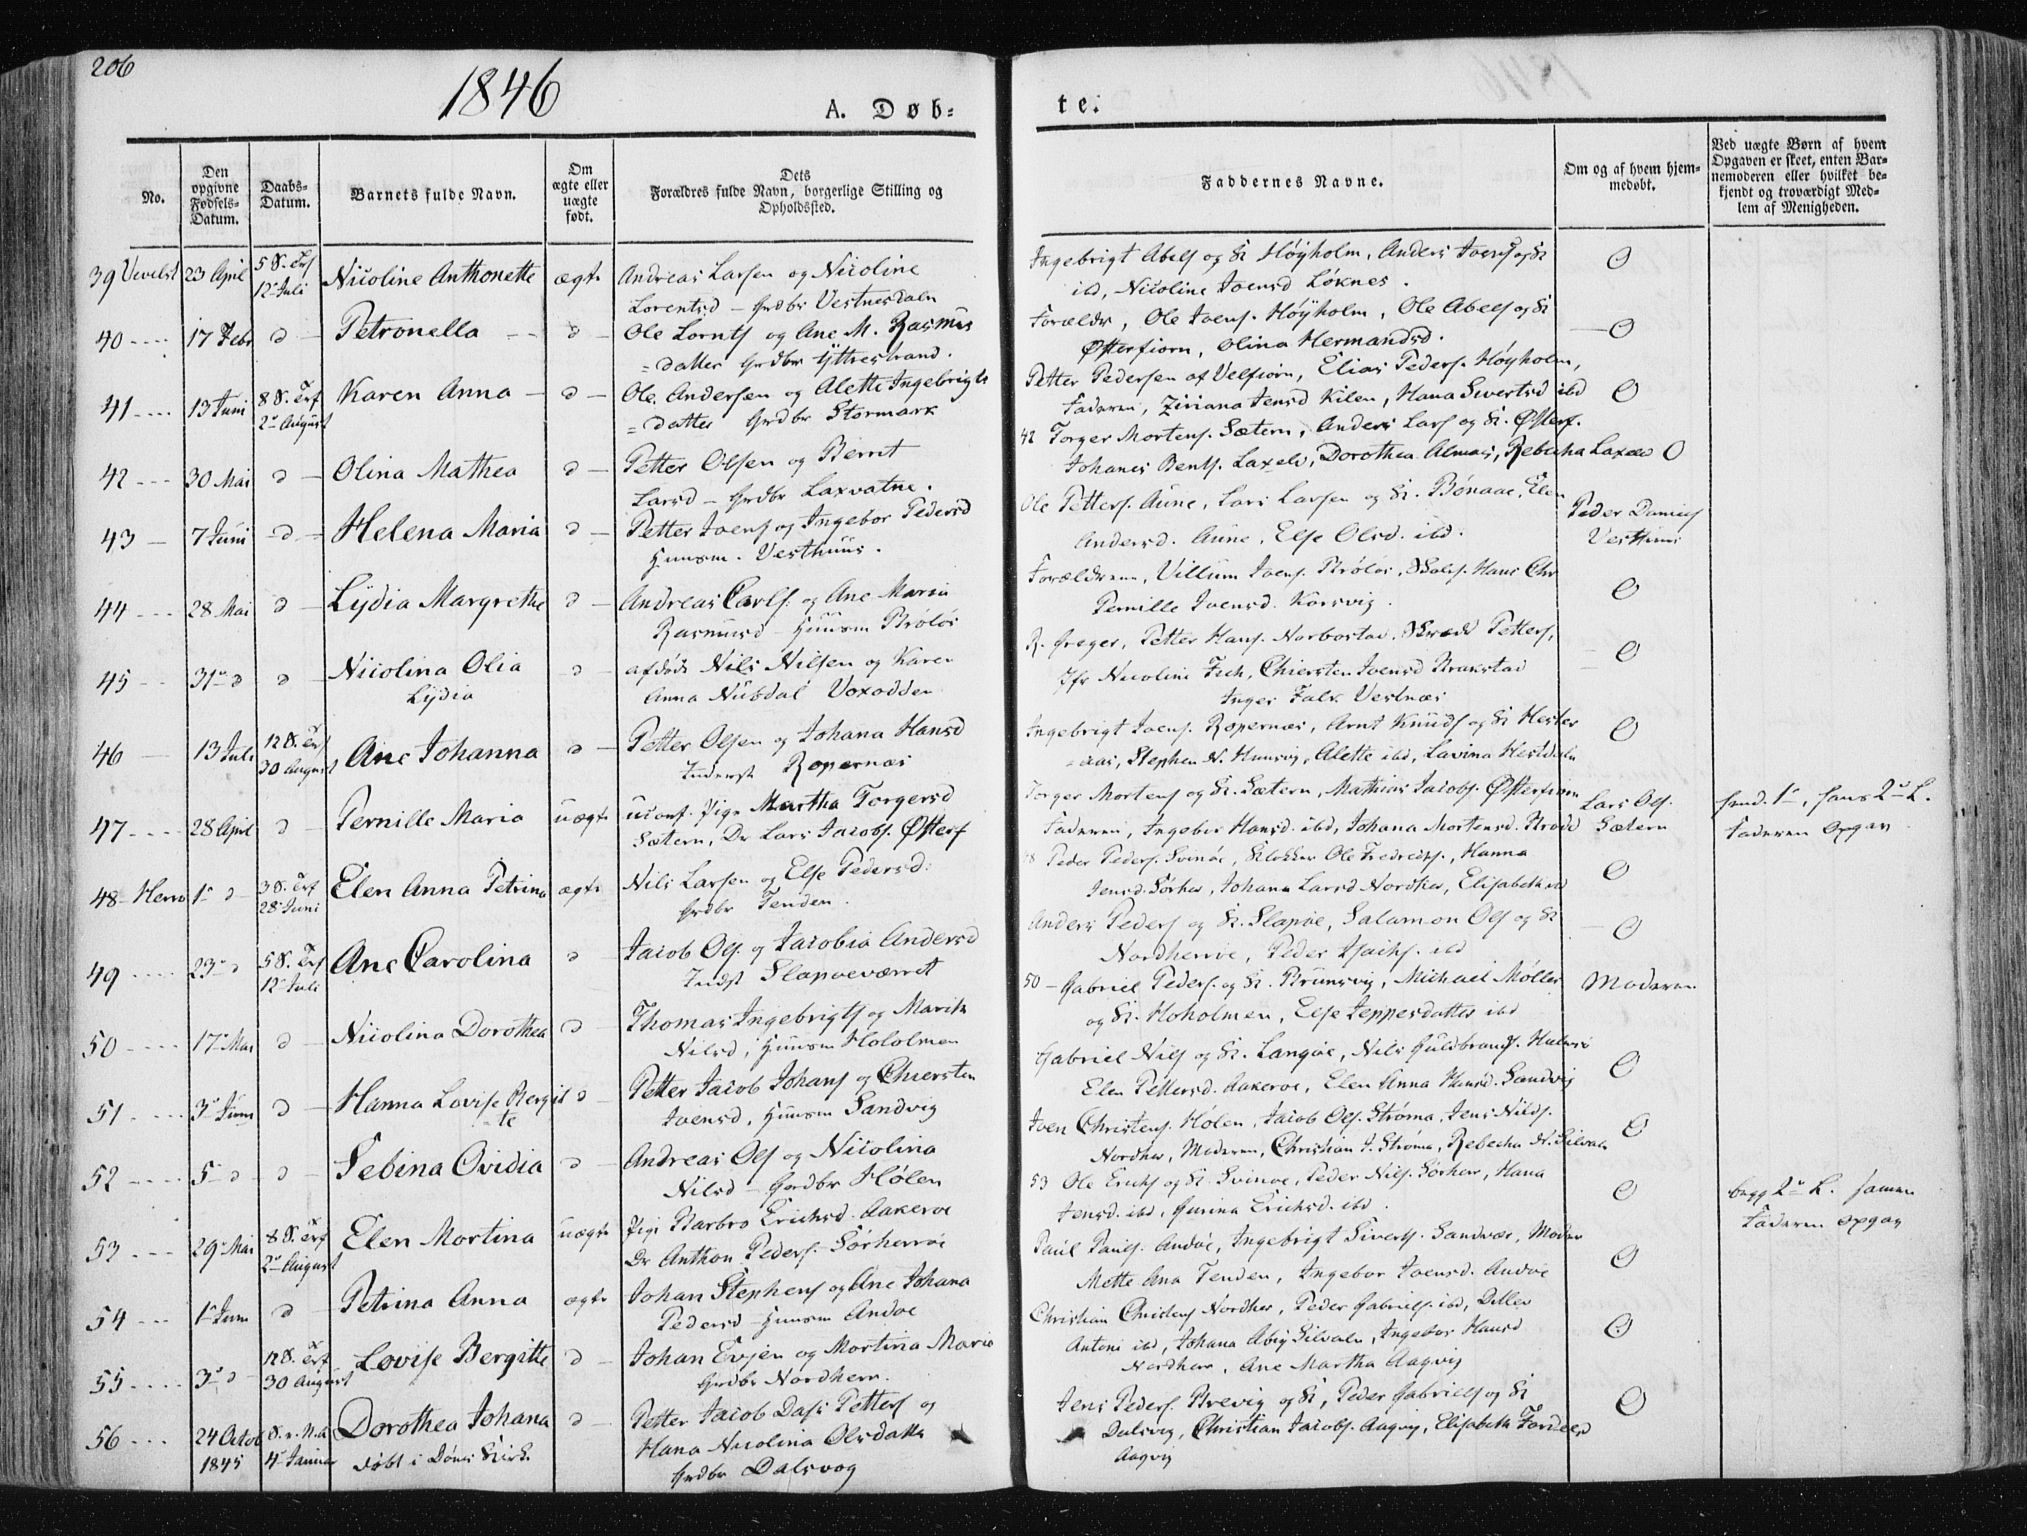 206
1846
A. Døb=
te.
No.
Den opgivne Fødsels-Datum.
Daabs-Datum.
Barnets fulde Navn.
Om ægte eller uægte født.
Dets Forældres fulde Navn, borgerlige Stilling og Opholdssted.
Faddernes Navne.
Om og af hvem hjemmedøbt.
Ved uægte Børn af hvem Opgaven er skeet, enten Barnemoderen eller hvilket bekjendt og troværdigt Medlem af Menigheden.
39 Vevelst 23 April 5 S. Trf 12 Juli Nicoline Anthonette ægte Andreas Larsen og Nicoline
Lorentsd - Grdbr Vestnesdaln
Ingebrigt Abels og K Høyholm, Anders Joens og K
ibd, Nicoline Joensd Løknes. O
40 17 Febr d Petronella d Ole Lornts og Ane M. Rasmus
=datter Grdbr Yttrestrand.
Forældr, Ole Joens. Høyholm, Ole Abels og K
Østerfiorn, Olina Hermandsd. O
41 13 Juni 8 S. Trf 2 August Karen Anna d Ole Andersen og Alette Ingebrigts
=datter Grdbr Stormark
Petter Pedersen af Velfiorn, Elias Peders. Høyholm,
Faderen, Ziriana Jensd Kilen, Hana Sivertsd ibd O
42 30 Mai d Olina Mathea d Petter Olsen og Berret
Larsd - Grdbr Laxvatne.
42 Torger Mortens. Sætern, Anders Lars og K. Østerf.
Johanes Bents. Laxelv, Dorothea Almaas, Rebecha Laxelv O
43 7 Juni d Helena Maria d Petter Joens og Ingebor Pedersd
Huusm. Vesthuus.
Ole Petters. Aune, Lars Larsen og K. Bønaae, Elen
Andersd. Aune, Else Olsd. ibd.
Peder Daniels
Vesthuus
44 28 Mai d Lydia Margrethe d Andreas Carls. og Ane Maria
Rasmusd - Huusm Brøløs
Forældrene, Villum Joens. Brøløs, Hans Chr
Pernille Joensd. Korsvig. O
45 31 d d Nicolina Olia
Lydia d afdøde Nils Nilsen og Karen
Anna Nubdal Voxodden
R. Greger, Petter Hans. Norbostad, Petters,
Jfr Nicoline Fich, Chiersten Joensd Brakstad
Inger Falk Vestnæs O
46 13 Juli 12 S. Trf 30 August Ane Johanna d Petter Olsen og Johana Hansd
Inderst Ropernæs
Ingebrigt Joens. Ropernæs, Arnt Knuds og K Hestnes
Stephen N. Huusvig, Alette ibd, Lavina Hestdaln O
47 28 April d Pernille Maria uægte uconf. Pige Martha Torgersd
Sætern, Dr Lars Jacobs. Østerf
Torger Mortens og K. Sætern, Mathias Jacobs. Østerfiorn
Faderen, Ingebor Hansd. ibd, Johana Mortensd.
Lars Ols.
Sætern
hend. 1, hans 2 L.
Faderen opgav
48 Herrø 1 d 3 S. Trf 28 Juni Elen Anna Petrina ægte Nils Larsen og Else Pedersd:
Grdbr Tenden.
48 Peder Peders. Svinøe, Klokker Ole Fredricks., Hanna
Jensd. Sørher, Johana Larsd Nordher, Elisabeth ibd O
49 23 d 5 S. Trf 12 Juli Ane Carolina d Jacob Ols. og Jacobia Andersd
Indst Slapøeværret
Anders Peders og K. Slapøe, Salamon Ols og K
Nordherrøe, Peder Isachs. ibd O
50 17 Mai d Nicolina Dorothea d Thomas Ingebrigts og Marith
Nilsd, Huusm Hoholmen
50 - Gabriel Peders. og K. Brunsvig, Michael Møller
og K. Hoholmen, Else Jeppesdatter ibd
Moderen
51 3 Juni d Hanna Lovise Bergit
te d Petter Jacob Johans og Chiersten
Joensd, Huusm Sandvig
Gabriel Nils og K. Langøe, Nils Guldbrands.
Elen Pettersd. Aakerøe, Elen Anna Hansd. Sandvig O
52 5 d d Sebina Ovidia d Andreas Ols og Nicolina
Nilsd - Grdbr Hølen
Joen Christens. Hølen, Jacob Ols. Strøma, Jens Nilds.
Nordher, Moderen, Christian J. Strøma, Rebecha N. Silvaln O
53 29 Mai 8 S. Trf 2 August Elen Mortina uægte Pige Barbro Erichsd. Aakerøe
Dr Anthon Peders. Sørherrøe
53 Ole Erichs og K. Svinøe, Peder Nils. Sørher, Hana
Jensd. ibd, Gurina Erichsd. ibd. O
begg 2 L. samme
Faderen opgav
54 1 Juni d Petrina Anna ægte Johan Stephens og Ane Johana
Pedersd - Huusm Andøe
Paul Pauls. Andøe, Ingebrigt Siverts. Sandnæs, Moder
Mette Ana Tenden, Ingebor Joensd. Andøe O
55 3 d 12 S. Trf 30 August Lovise Bergitte d Johan Evjen og Mortina Maria
Grdbr Nordhern.
Christian Christens Nordher, Peder Gabriels. ibd, Ditlev
Antoni ibd, Johana Abig Silvaln, Ingebor Hansd
Nordher, Ane Martha Aagvig O
56 24 Octob 1845 S. e. N.A. 4 Januar Dorothea Johana
døbt i Dønes Kirke d Petter Jacob Dass Petters og
Hana Nicolina Olsdatter
Grdbr Dalsvog
Jens Peders. Brevig og K, Peder Gabriels og K
Dalsvig, Christian Jacobs. Aagvig, Elisabeth
Aagvig O